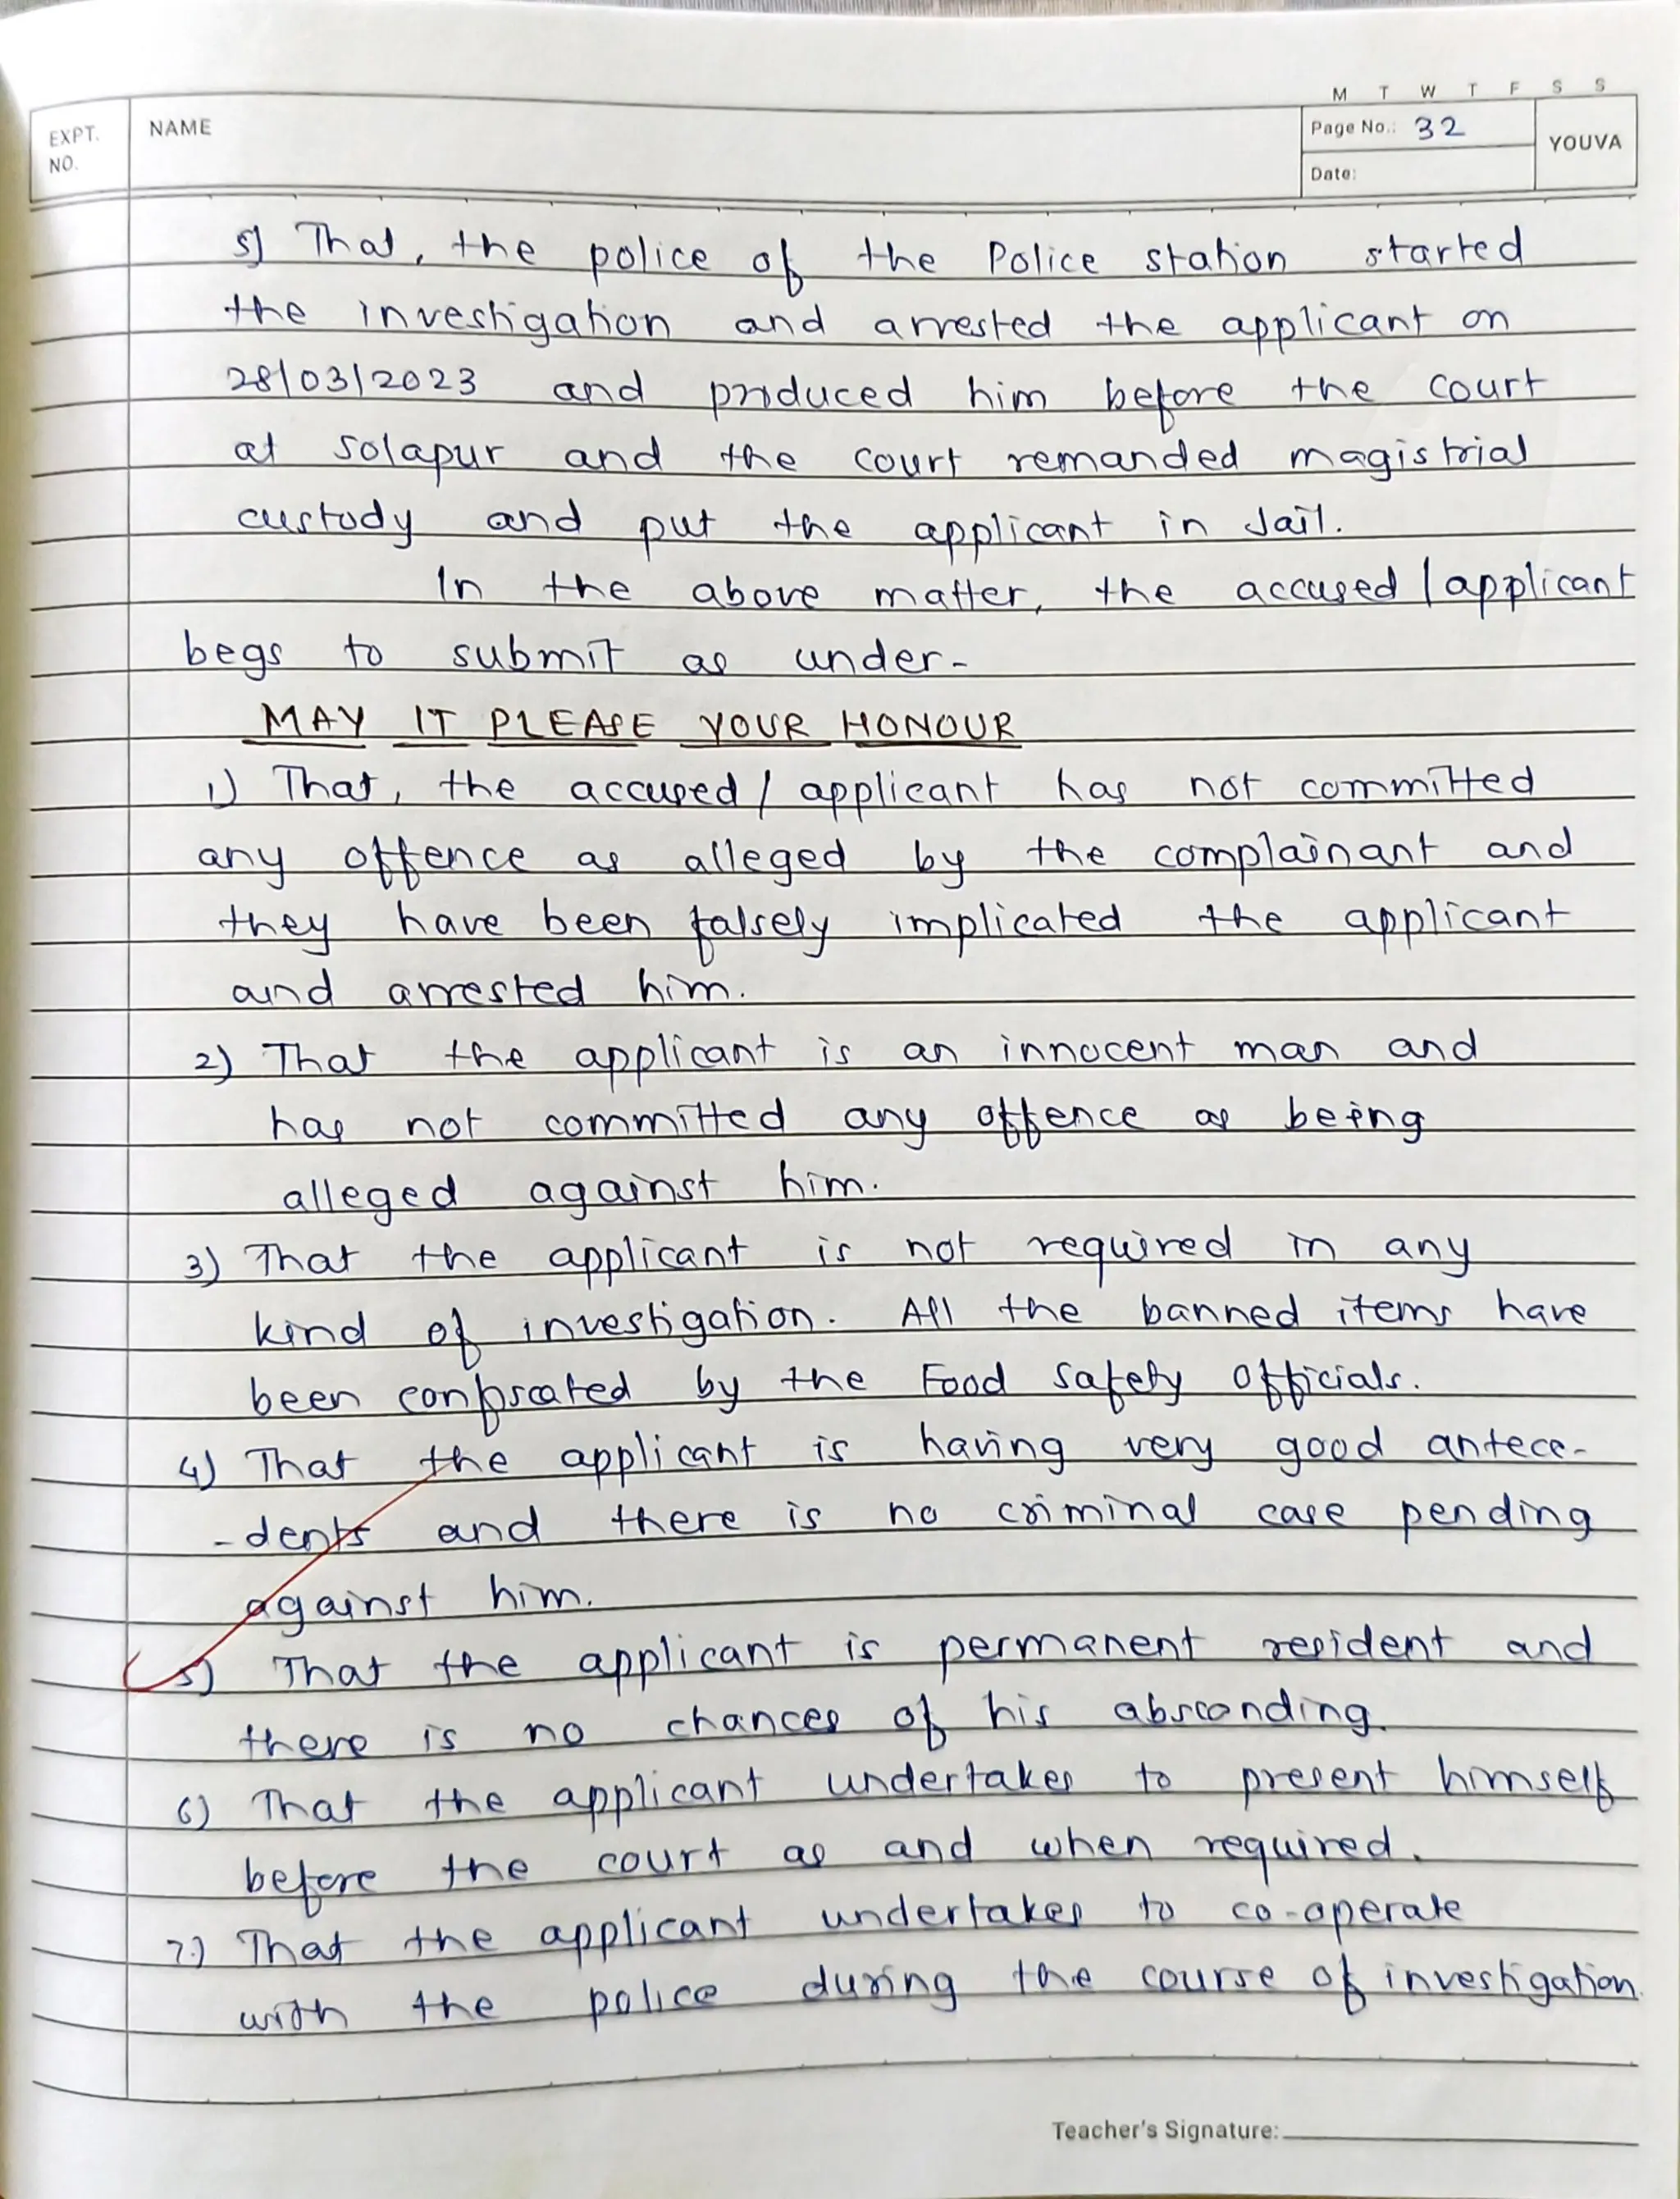 M T W T F S S
EXPT. NO.
NAME
Page No.: 32
YOUVA
Date:
5) That, the police of the Police station started
the investigation and arrested the applicant on
28/03/2023 and produced him before the court
at solapur and the court remanded magistrial
custody and put the applicant in Jail.
In the above matter, the accused / applicant
begs to submit as under-
MAY IT PLEASE YOUR HONOUR
1) That, the accused / applicant has not committed
any offence as alleged by the complainant and
they have been falsely implicated the applicant
and arrested him.
2) That the applicant is an innocent man and
has not committed any offence as being
alleged against him.
3) That the applicant is not required in any
kind of investigation. All the banned items have
been confiscated by the Food Safety Officials.
4) That the applicant is having very good antece-
-dents and there is no criminal case pending
against him.
5) That the applicant is permanent resident and
there is no chances of his absconding.
6) That the applicant undertakes to present himself
before the court as and when required.
7.) That the applicant undertakes to co-operate
with the police during the course of investigation.
Teacher's Signature: